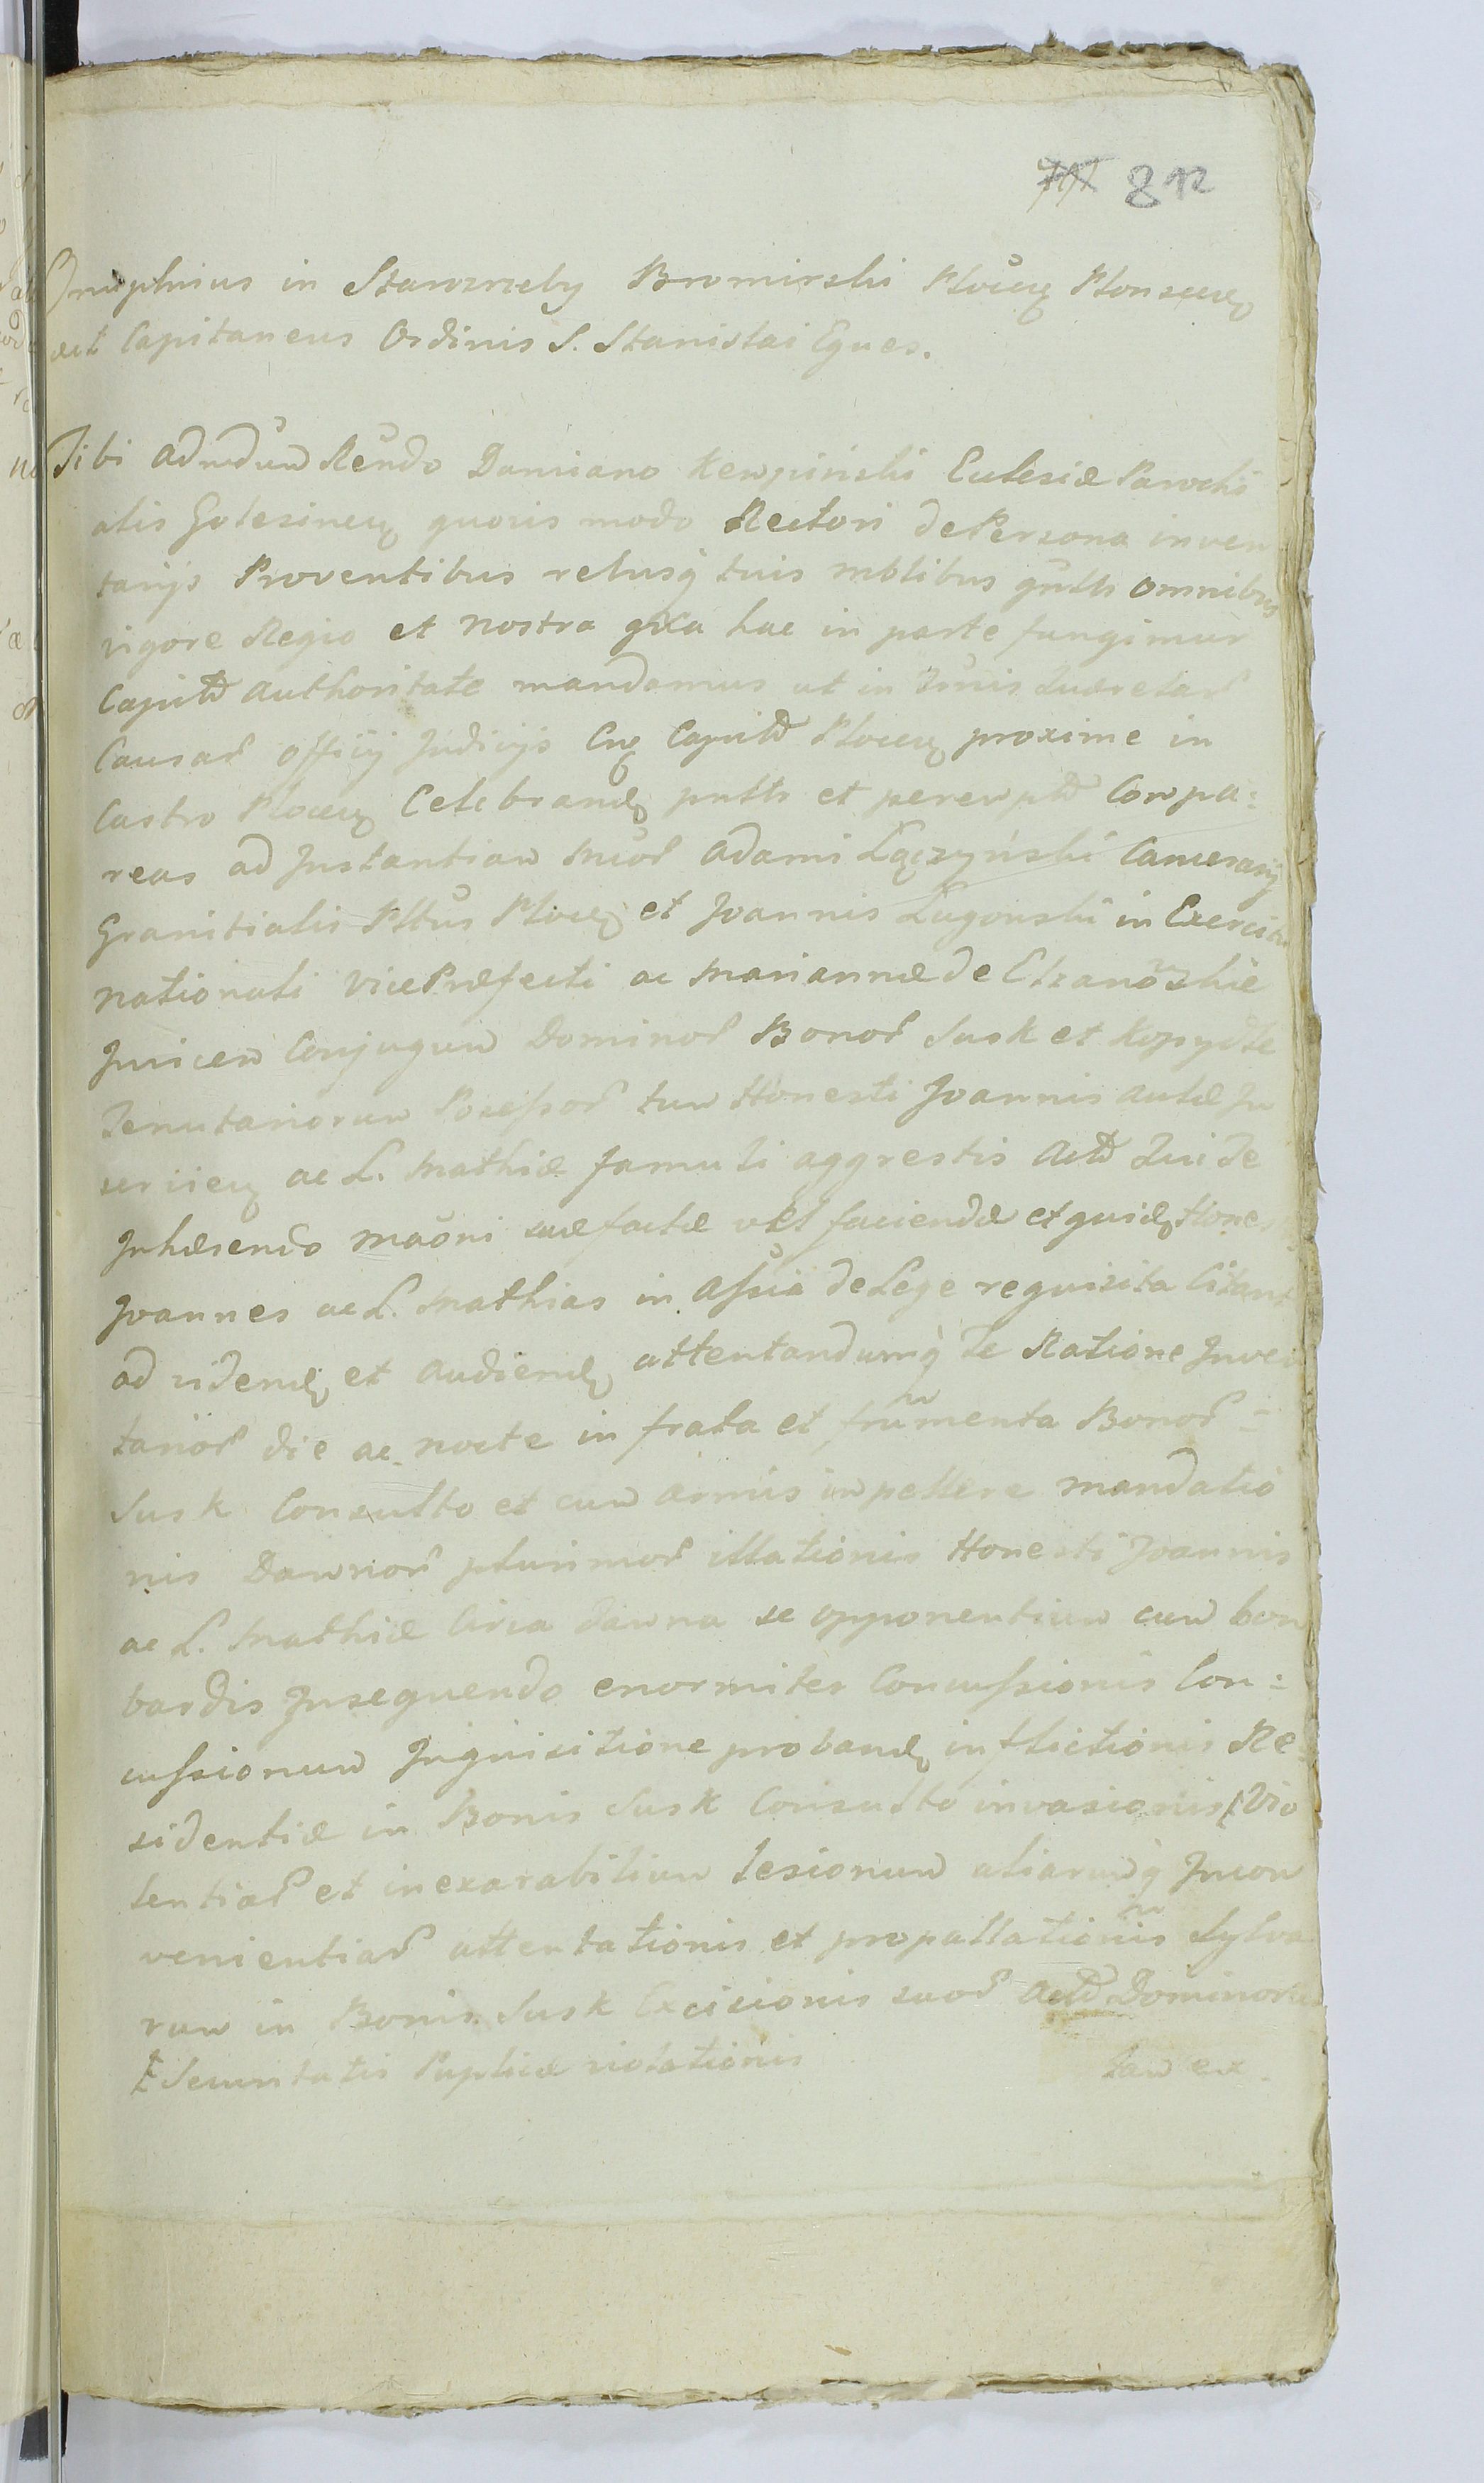 812
Onuphrius in Stawizreby Bromirski Płoceñ Płonsceñ
ect Capitaneus Ordinis S. Stanislai Eques.
Tibi Admdum Rendo Damiano Kempiński Eclesiæ Parochi
alis Golesineñ quovis modo Rectori de Persona inven
tarijs Proventibus relusq tuis mblibus gnltr omnibus
vigore Regio et nostra qua hac in parte fungimur
Capitł Authoritate mandamus ut in Trnis Quæretar
Causar officij Judicijs Cñ Capitł Płoceñ proxime in
Castro Płoceñ Celebrand pnltr et peremptł Compa:
reas ad Instantiam Mcor Adami Łączyński Camerarij
Granitialis Pltus Płoceñ et Joannis Lugowski in Exercitu
nationali Vice Præfecti ac Mariannæ de
Invicem Conjugum Dominor Bonor Susk et Kopydłe
Tenutariorum Posessor tum Honesti Joannis Aulæ In
servieñ ac L. Mathiæ famuli aggrestis Actł Qui Te
Inhærendo maoni suæ factæ vel faciendæ et quid Hones
Joannes ac L. Mathias in Assia de Lege requisita Citant
ad videnđ et Audienđ attentandumq Te Ratione Inven
tarior die ac nocte in frata et frumenta Bonor
Susk Consulto et cum armis impellere mandatio
nis Damnor plurimor illationis Honesti Joannis
ac L. Mathiæ Circa damna se opponentium cum bom
bardis Insequendo enormiter Concussionis Con:
cussionum Inquisitione probanđ inflictionis Re
sidentiæ in Bonis Susk Consulto invasionis Vio
lentiar et inexarabilium lesionum aliarumq Incon
venientiar attentationis et propallationis Sylva
rum in Bonis Susk Excisionis suor Actł Dominorum
Securitatis Puplicæ violationis
tam ex